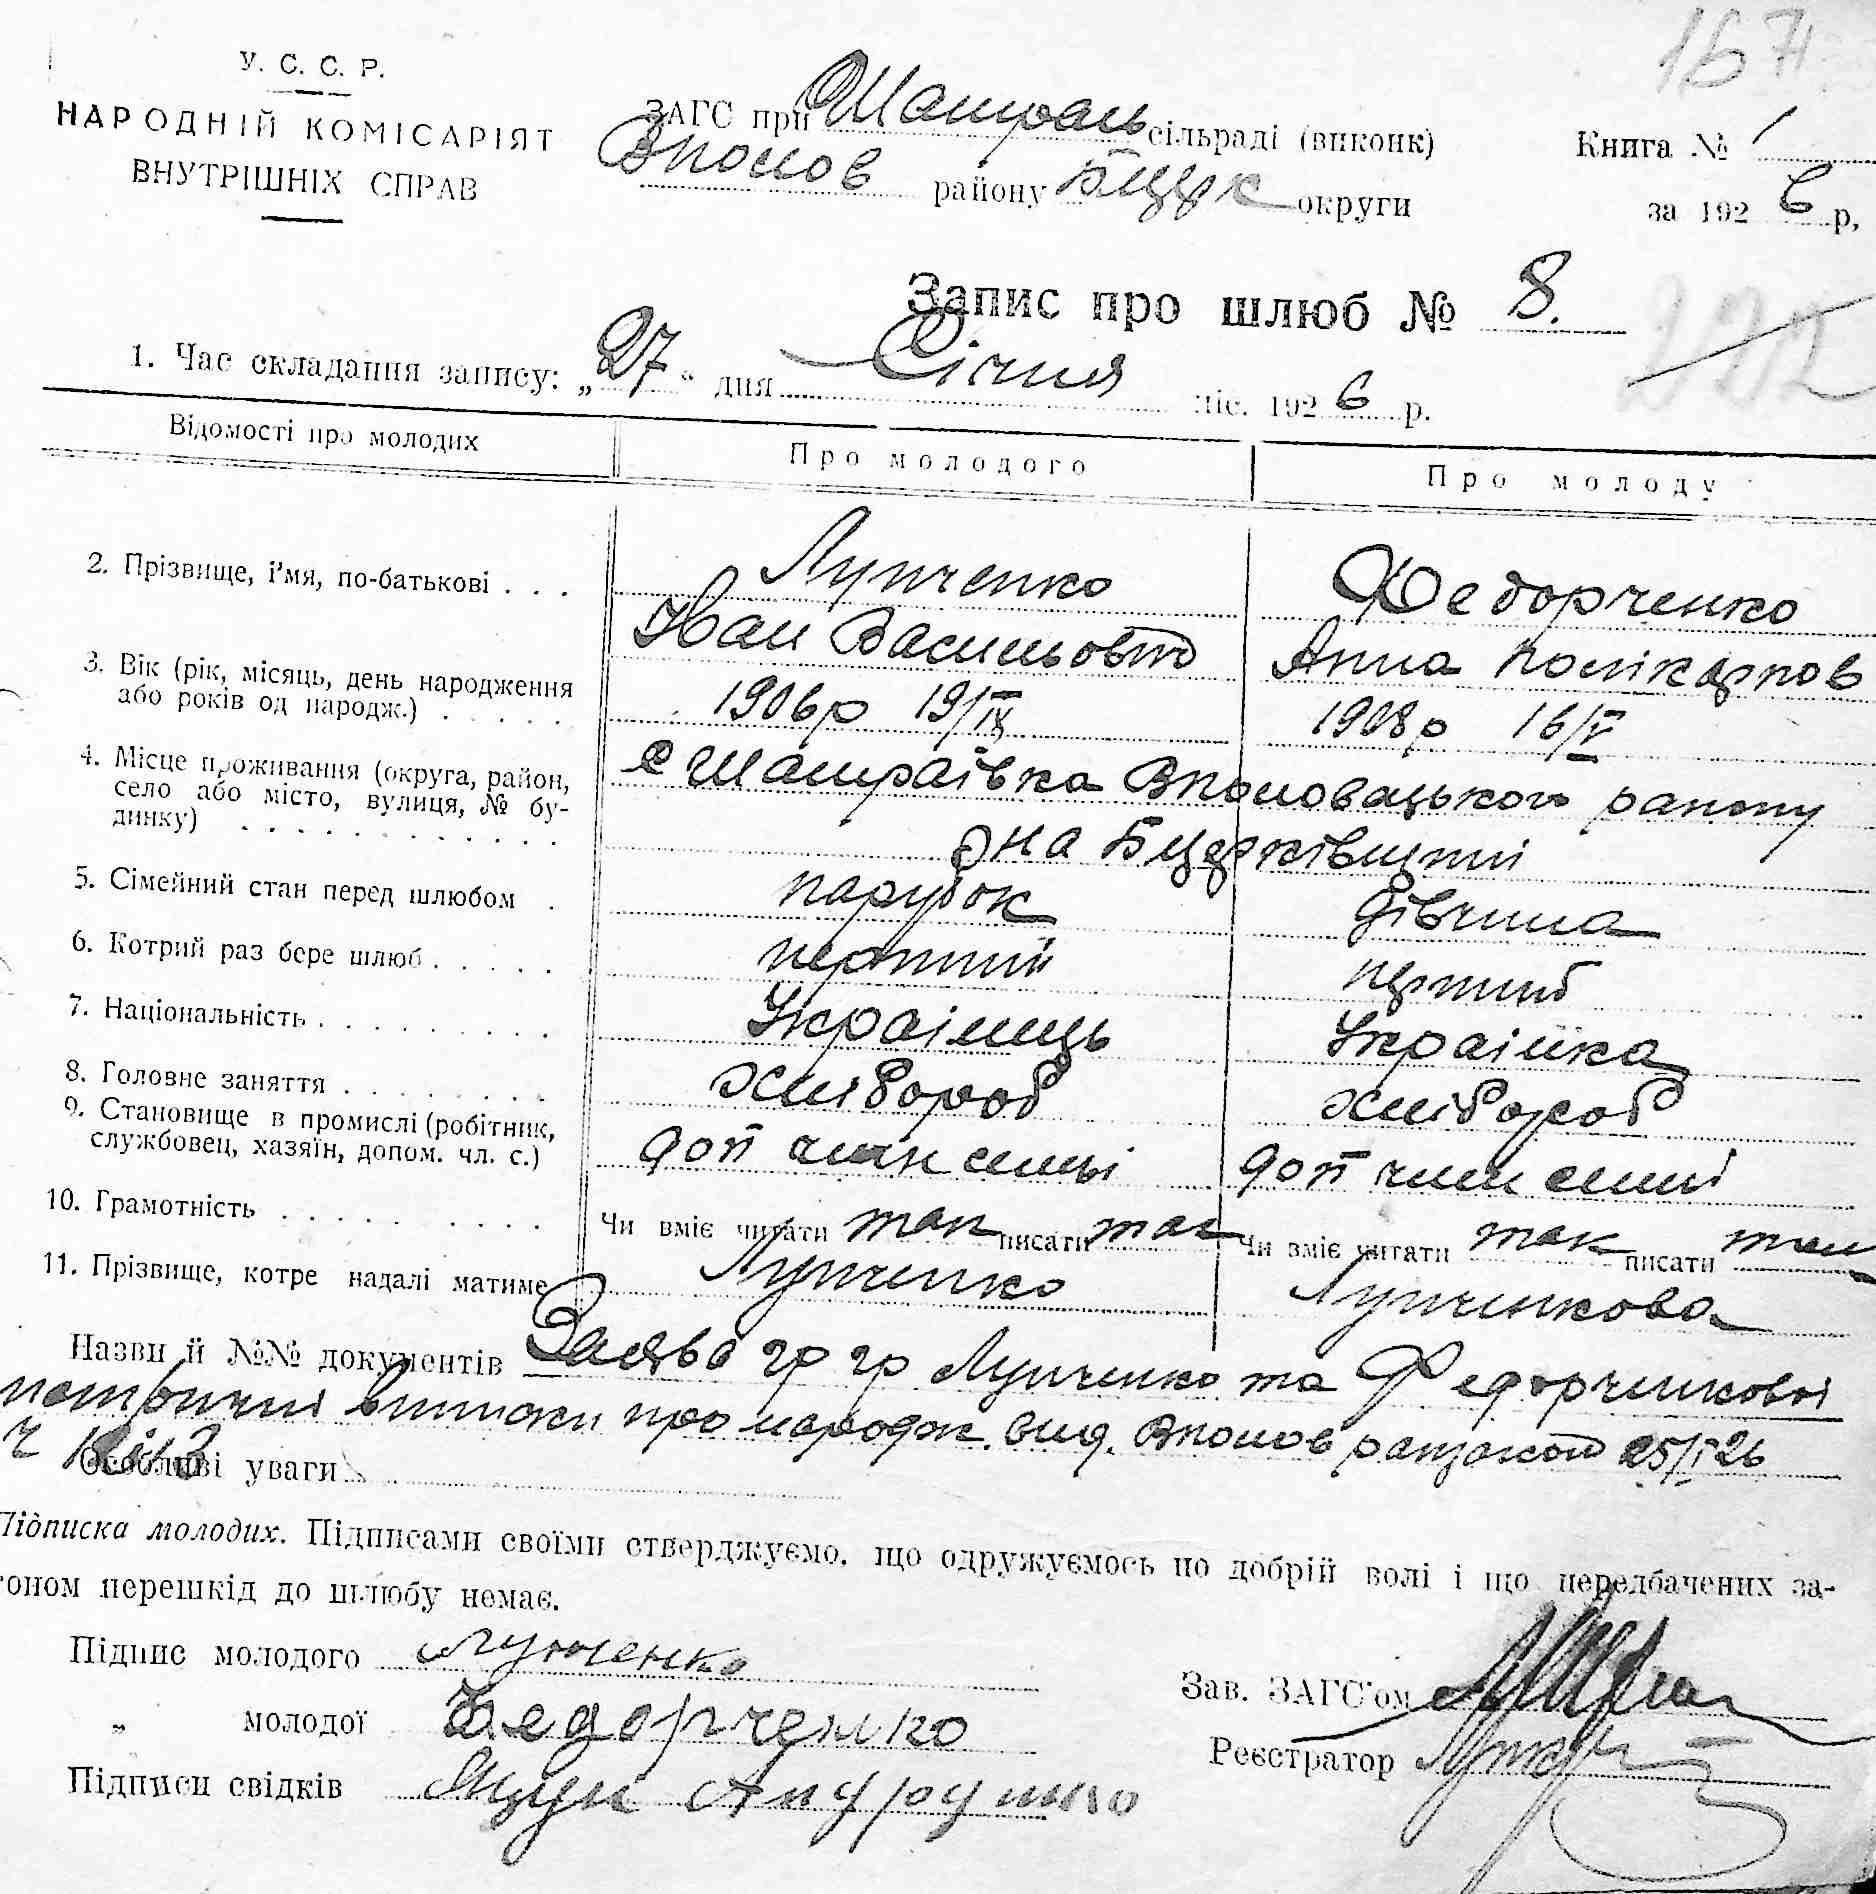 167
У. С. С. Р.
НАРОДНІЙ КОМІСАРІЯТ
ВНУТРІШНІХ СПРАВ
ЗАГС при Шамраїв сільраді (виконк)
Вполов району БЦерк округи
Книга № 1
за 1926 р,
Запис про шлюб № 8.
1. Час складання запису: „27“ дня Січня міс. 1926 р.
Відомості про молодих
Про молодого
Про молоду
2. Прізвище, і'мя, по-батькові . . .
Лупченко
Іван Васильович
Федорченко
Анна Полікарпов
3. Вік (рік, місяць, день народження
або років од народж.) . . . . .
1906р 19/IX
1908р 16/V
4. Місце проживання (округа, район,
село або місто, вулиця, № бу-
динку) . . . . . . . . . . . .
с Шамраївка Вполовецького району
на БЦерківщині
5. Сімейний стан перед шлюбом .
парубок
дівчина
6. Котрий раз бере шлюб . . . . .
перший
перший
7. Національність . . . . . . . . .
Українець
Українка
8. Головне заняття . . . . . . . .
хлібороб
хлібороб
9. Становище в промислі (робітник,
службовец, хазяїн, допом. чл. с.)
доп член семьі
доп член семьі
10. Грамотність . . . . . . . . . .
Чи вміє читати так писати так
Чи вміє читати так писати так
11. Прізвище, котре надалі матиме
Лупченко
Лупченкова
Назви й №№ документів Заява гр гр Лупченко та Федорченкової
метричні виписки про народж. вид. Вполов 25/I 26
Особливі уваги
Підписка молодих. Підписами своїми стверджуємо, що одружуємось по добрій волі і що передбачених за-
коном перешкід до шлюбу немає.
Підпис молодого Лупченко
„ молодої Федорченко
Підписи свідків Яцук Андрущенко
Зав. ЗАГС'ом
Реєстратор